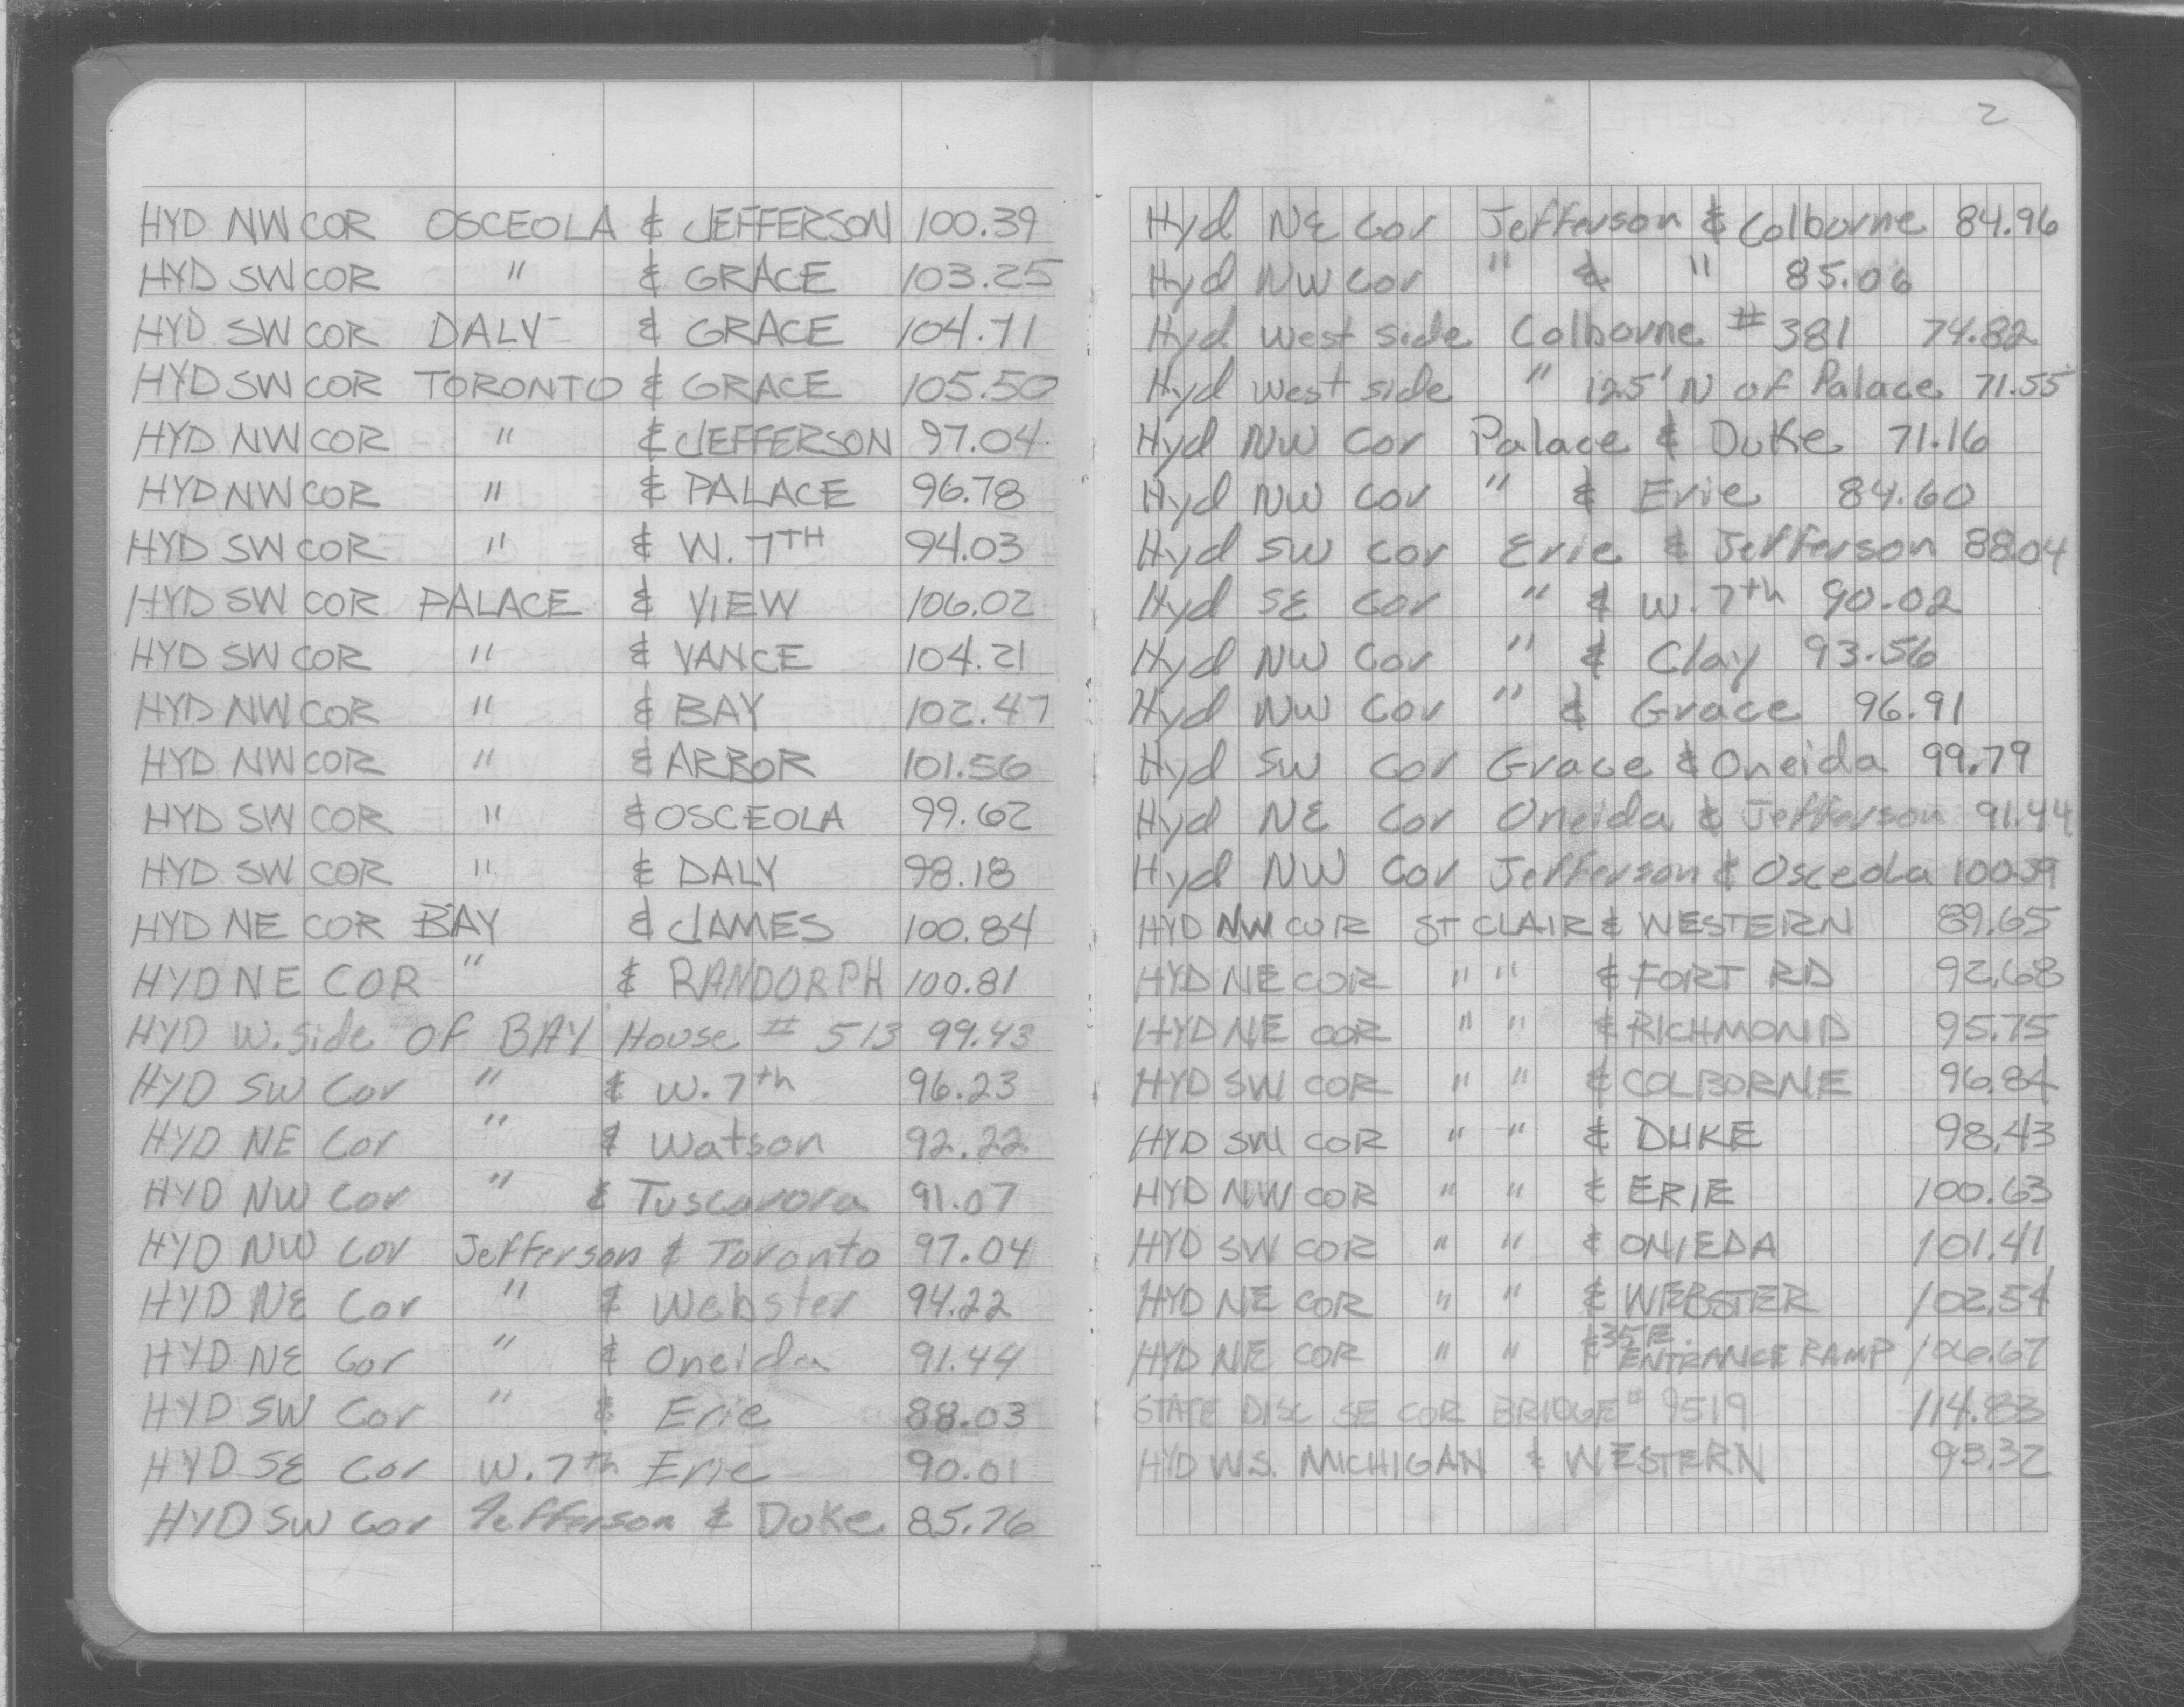 HYD NW COR OSCEOLA & JEFFERSON 100.39
HYD SW COR " & GRACE 103.25
HYD SW COR DALY & GRACE 104.71
HYD SW COR TORONTO & GRACE 105.50
HYD NW COR " & JEFFERSON 97.04
HYD NW COR " & PALACE 96.78
HYD SW COR " & W. 7TH 94.03
HYD SW COR PALACE & VIEW 106.02
HYD SW COR " & VANCE 104.21
HYD NW COR " & BAY 102.47
HYD NW COR " & ARBOR 101.56
HYD SW COR " & OSCEOLA 99.62
HYD SW COR " & DALY 98.18
HYD NE COR BAY & JAMES 100.84
HYD NE COR " & RANDORPH 100.81
HYD W. side OF BAY House # 513 99.43
HYD SW Cor " & W. 7th 96.23
HYD NE Cor " & Watson 92.22
HYD NW Cor " & Tuscarora 91.07
HYD NW Cor Jefferson & Toronto 97.04
HYD NE Cor " & Webster 94.22
HYD NE Cor " & Oneida 91.44
HYD SW Cor " & Erie 88.03
HYD SE Cor W. 7th Erie 90.01
HYD SW Cor Jefferson & Duke 85.76
2
Hyd NE Cor Jefferson & Colborne 84.96
Hyd NW Cor " & " 85.06
Hyd West side Colborne # 381 74.82
Hyd West side " 125' N of Palace 71.55
Hyd NW Cor Palace & Duke 71.16
Hyd NW Cor " & Erie 84.60
Hyd SW Cor Erie & Jefferson 88.04
Hyd SE Cor " & W. 7th 90.02
Hyd NW Cor " & Clay 93.56
Hyd NW Cor " & Grace 96.91
Hyd SW Cor Grace & Oneida 99.79
Hyd NE Cor Oneida & Jefferson 91.44
Hyd NW Cor Jefferson & Osceola 100.39
HYD NW COR ST CLAIR & WESTERN 89.65
HYD NE COR " " & FORT RD 92.68
HYD NE COR " " & RICHMOND 95.75
HYD SW COR " " & COLBORNE 96.84
HYD SW COR " " & DUKE 98.43
HYD NW COR " " & ERIE 100.63
HYD SW COR " " & ONIEDA 101.41
HYD NE COR " " & WEBSTER 102.54
HYD NE COR " " & 35E ENTRANCE RAMP 106.67
STATE DISC SE COR BRIDGE # 9519 114.83
HYD W.S. MICHIGAN & WESTERN 93.32